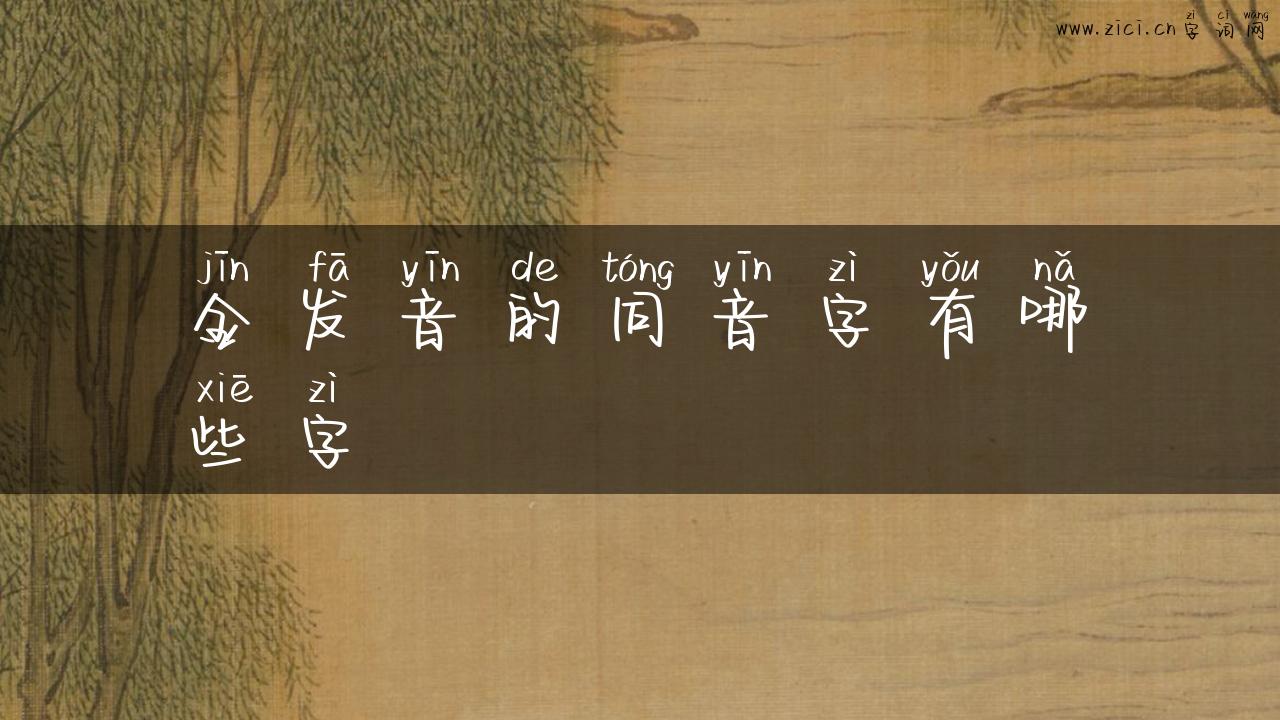 zì cí wǎng
www.zici.cn字词网
jīn fā yīn de tóng yīn zì yǒu nǎ
金发音的同音字有哪
xiē zì
些字